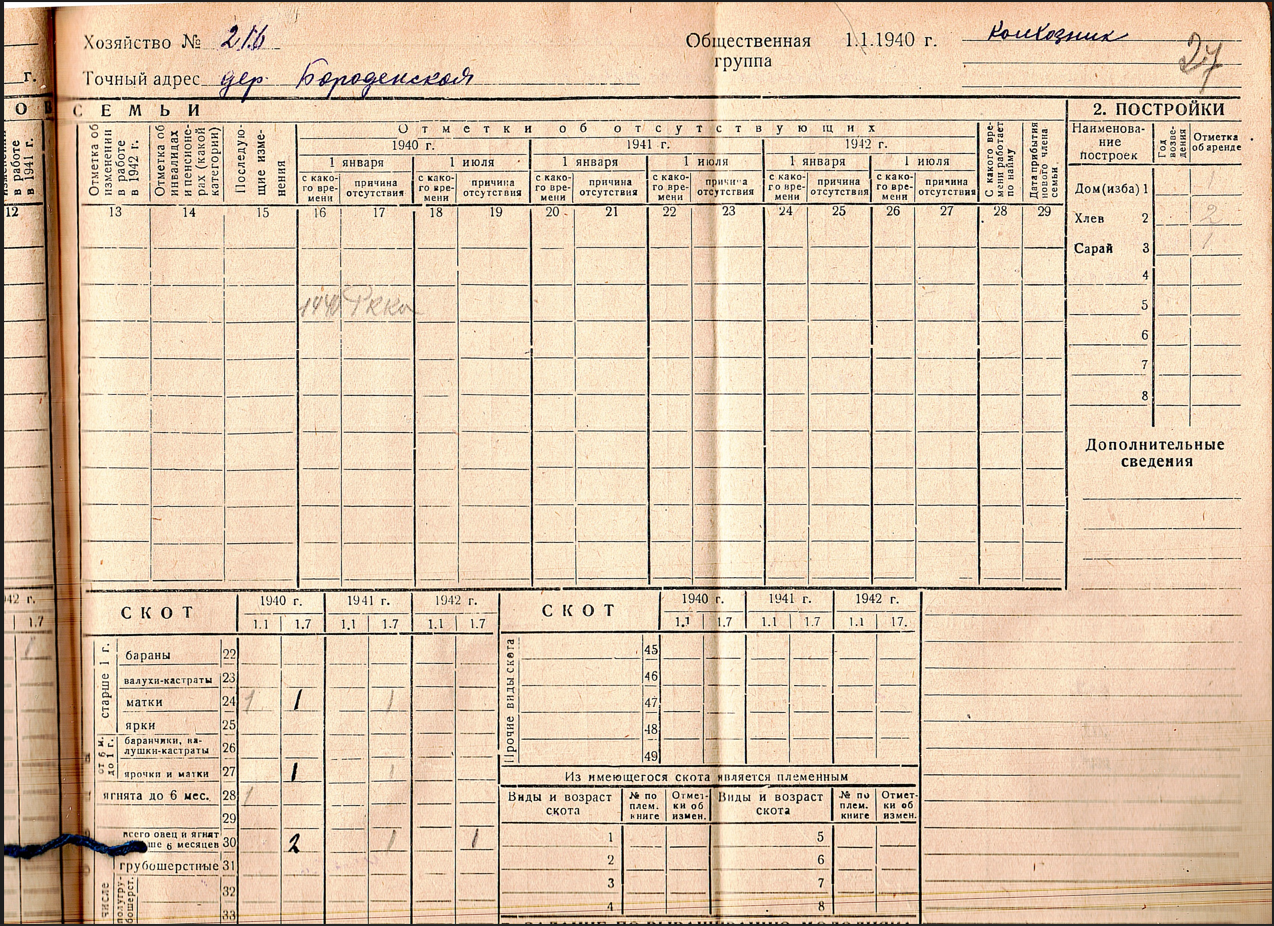 Хозяйство № 216
Общественная группа 1.1.1940 г. Колхозник
27
Точный адрес дер. Бороденская
г.
О В СЕМЬИ
2. ПОСТРОЙКИ
в работе в 1941 г.
Отметка об изменении в работе в 1942 г.
Отметка об инвалидах и пенсионерах (какой категории)
Последующие изменения
Отметки об отсутствующих
1940 г. 1941 г. 1942 г.
1 января 1 июля 1 января 1 июля 1 января 1 июля
с какого времени причина отсутствия с какого времени причина отсутствия с какого времени причина отсутствия с какого времени причина отсутствия с какого времени причина отсутствия с какого времени причина отсутствия
С какого времени работает по найму
Дата прибытия нового члена семьи
12 13 14 15 16 17 18 19 20 21 22 23 24 25 26 27 28 29
1940 РККА
Наименование построек Год возведения Отметка об аренде
Дом(изба) 1 1
Хлев 2 2
Сарай 3 1
4
5
6
7
8
Дополнительные сведения
942 г.
1.7
1
СКОТ 1940 г. 1941 г. 1942 г.
1.1 1.7 1.1 1.7 1.1 1.7
старше 1 г.
бараны 22
валухи-кастраты 23
матки 24 1 1 1
ярки 25
от 6 м. до 1 г.
баранчики, валушки-кастраты 26
ярочки и матки 27 1 1
ягнята до 6 мес. 28 1
29
всего овец и ягнят
ше 6 месяцев 30 2 1 1
числе
грубошерстные 31
полугрубошерст. 32
33
СКОТ 1940 г. 1941 г. 1942 г.
1.1 1.7 1.1 1.7 1.1 17.
Прочие виды скота
45
46
47
48
49
Из имеющегося скота является племенным
Виды и возраст скота № по плем. книге Отметки об измен. Виды и возраст скота № по плем. книге Отметки об измен.
1 5
2 6
3 7
4 8